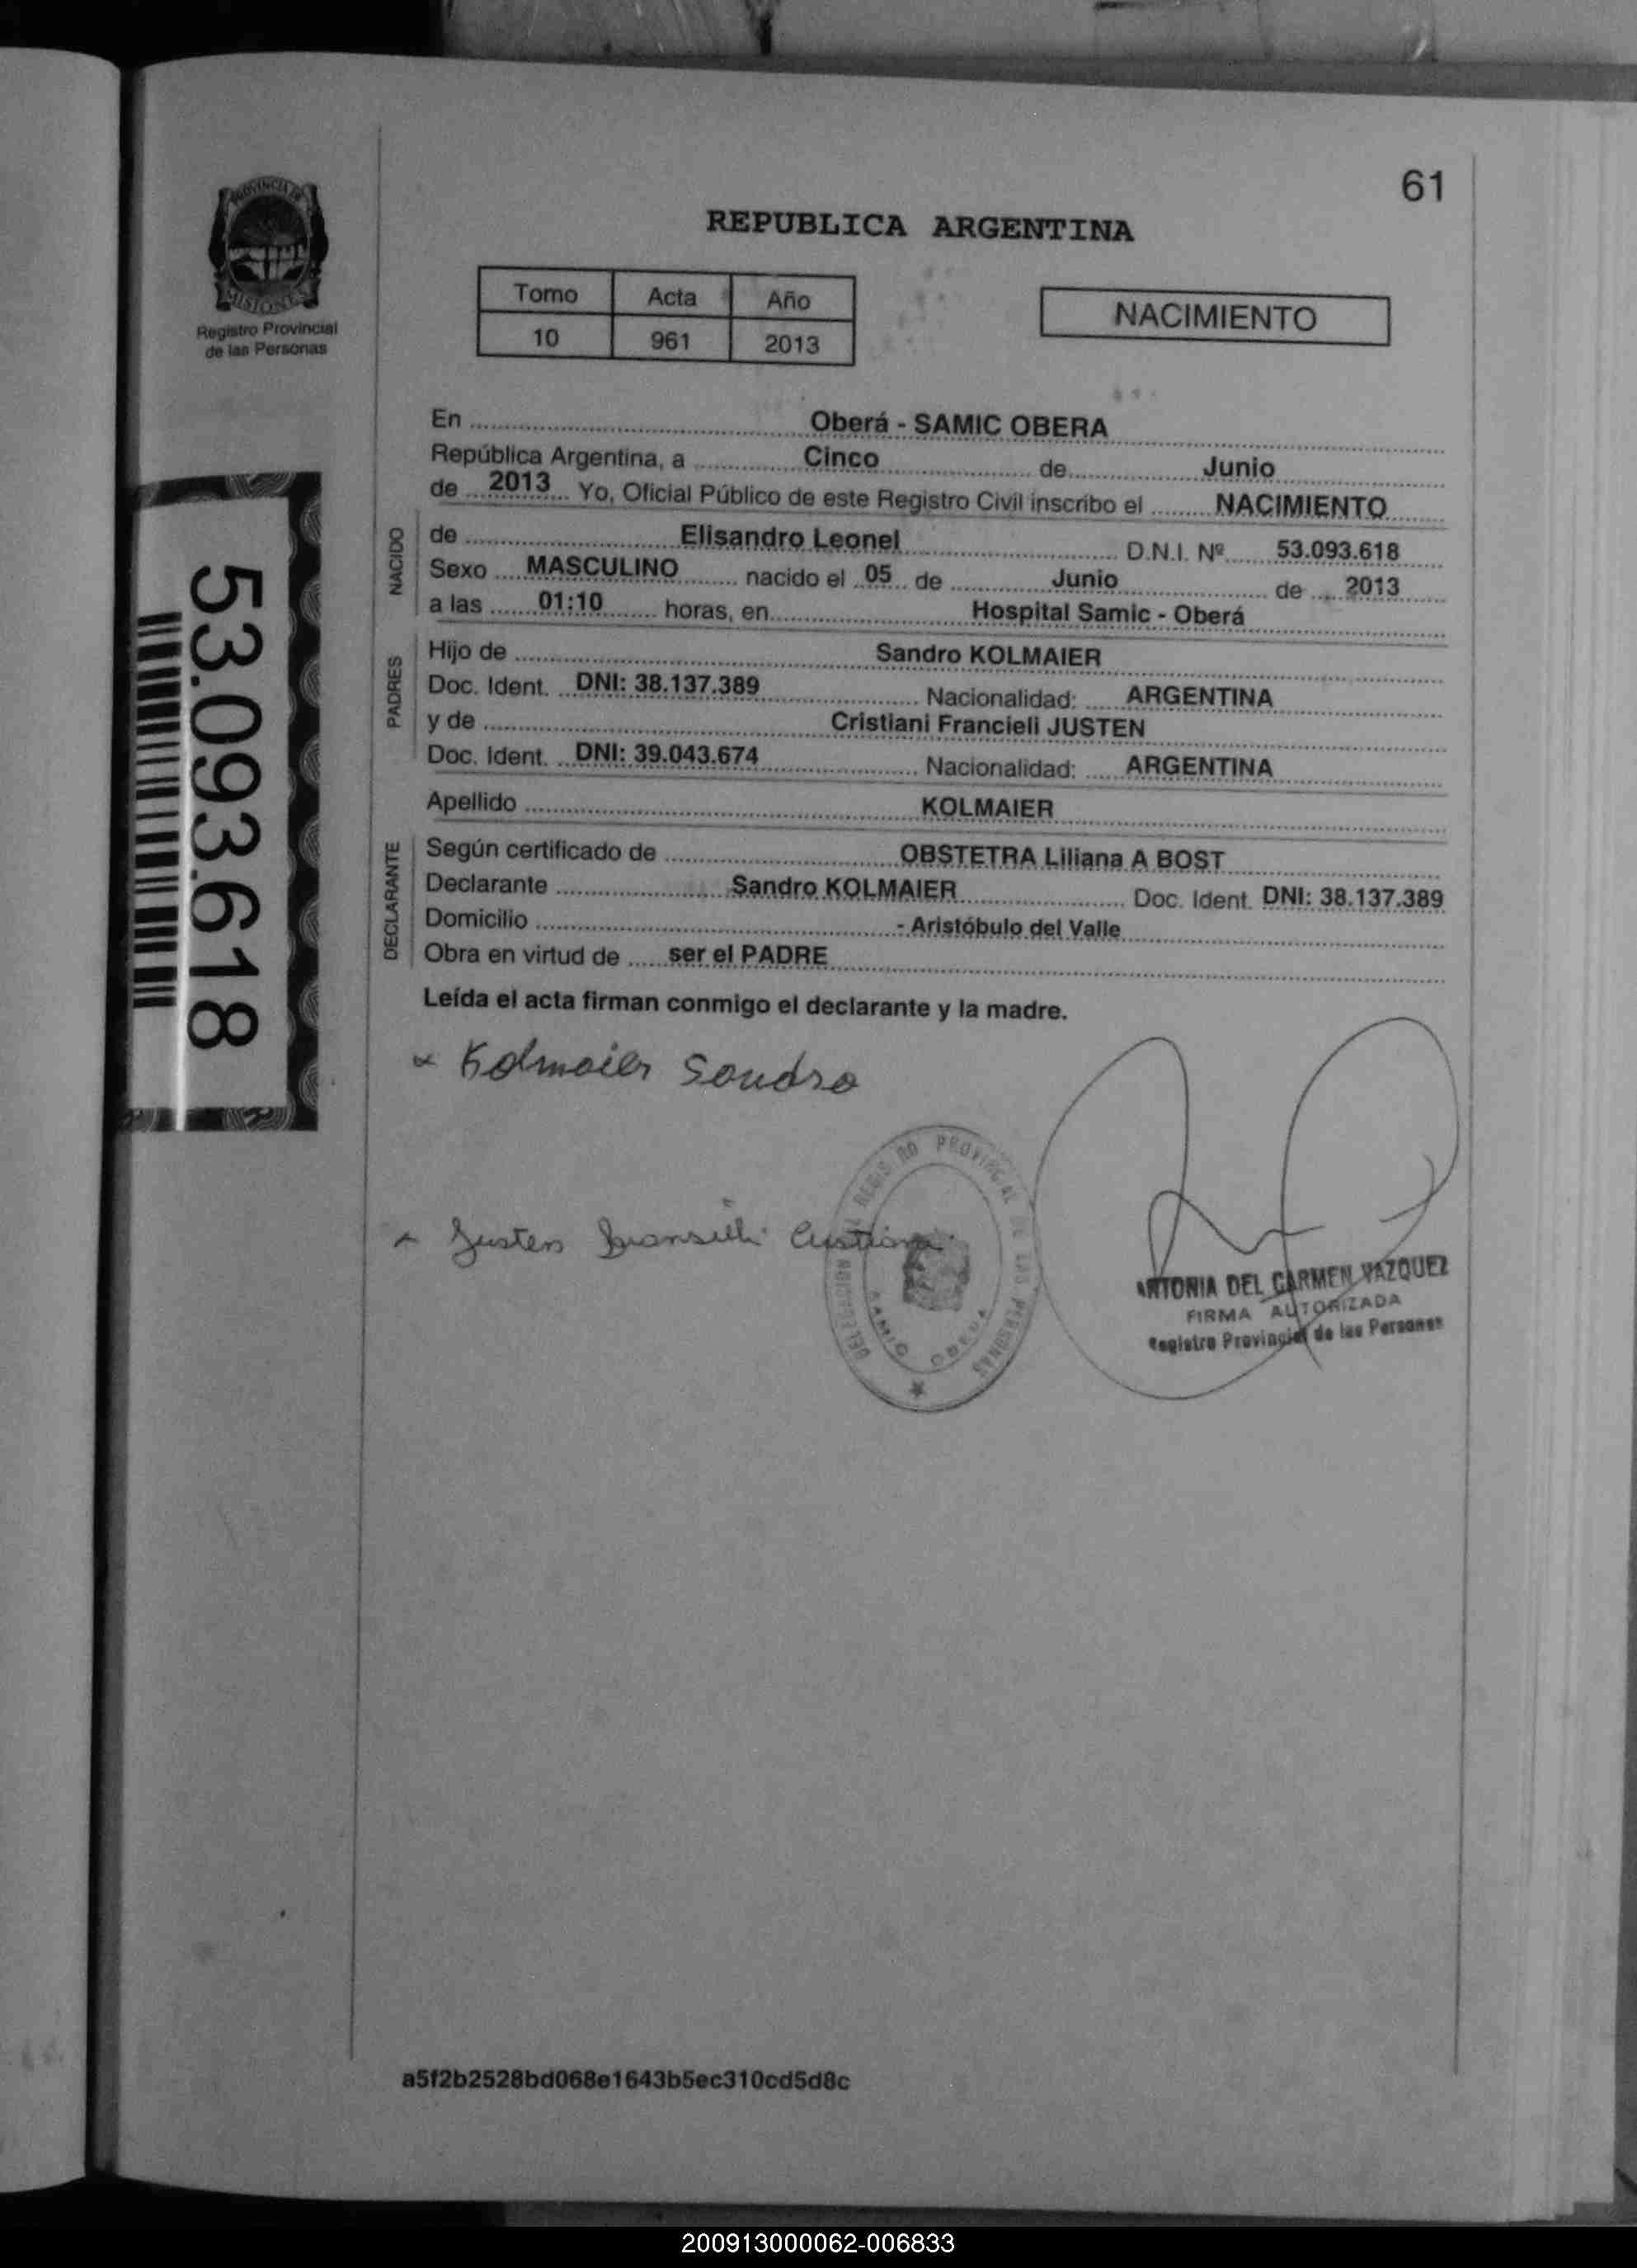 61
PROVINCIA DE
MISIONES
Registro Provincial
de las Personas
REPUBLICA ARGENTINA
Tomo Acta Año
10 961 2013
NACIMIENTO
En Oberá - SAMIC OBERA
República Argentina, a Cinco de Junio
de 2013 Yo, Oficial Público de este Registro Civil inscribo el NACIMIENTO
NACIDO
de Elisandro Leonel D.N.I. Nº 53.093.618
Sexo MASCULINO nacido el 05 de Junio de 2013
a las 01:10 horas, en Hospital Samic - Oberá
PADRES
Hijo de Sandro KOLMAIER
Doc. Ident. DNI: 38.137.389 Nacionalidad: ARGENTINA
y de Cristiani Francieli JUSTEN
Doc. Ident. DNI: 39.043.674 Nacionalidad: ARGENTINA
Apellido KOLMAIER
DECLARANTE
Según certificado de OBSTETRA Liliana A BOST
Declarante Sandro KOLMAIER Doc. Ident. DNI: 38.137.389
Domicilio - Aristóbulo del Valle
Obra en virtud de ser el PADRE
Leída el acta firman conmigo el declarante y la madre.
53.093.618
x Kolmaier Sandro
Justen
DELEGACION REGISTRO PROVINCIAL DE LAS PERSONAS
SAMIC OBERA
ANTONIA DEL CARMEN VAZQUEZ
FIRMA AUTORIZADA
Registro Provincial de las Personas
a5f2b2528bd068e1643b5ec310cd5d8c
200913000062-006833